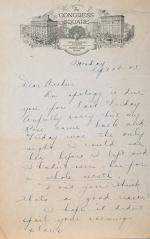 The
CONGRESS
SQUARE
Monday
Dear Archie
An apology is due
you for last Friday
Awfully sorry but my
Rose came back and
Friday was the only
night I could see
her before I left and
I hadn't seen her for
whole month.
Don't you think
that's a good reason
I hope it didn't
spoil your evening